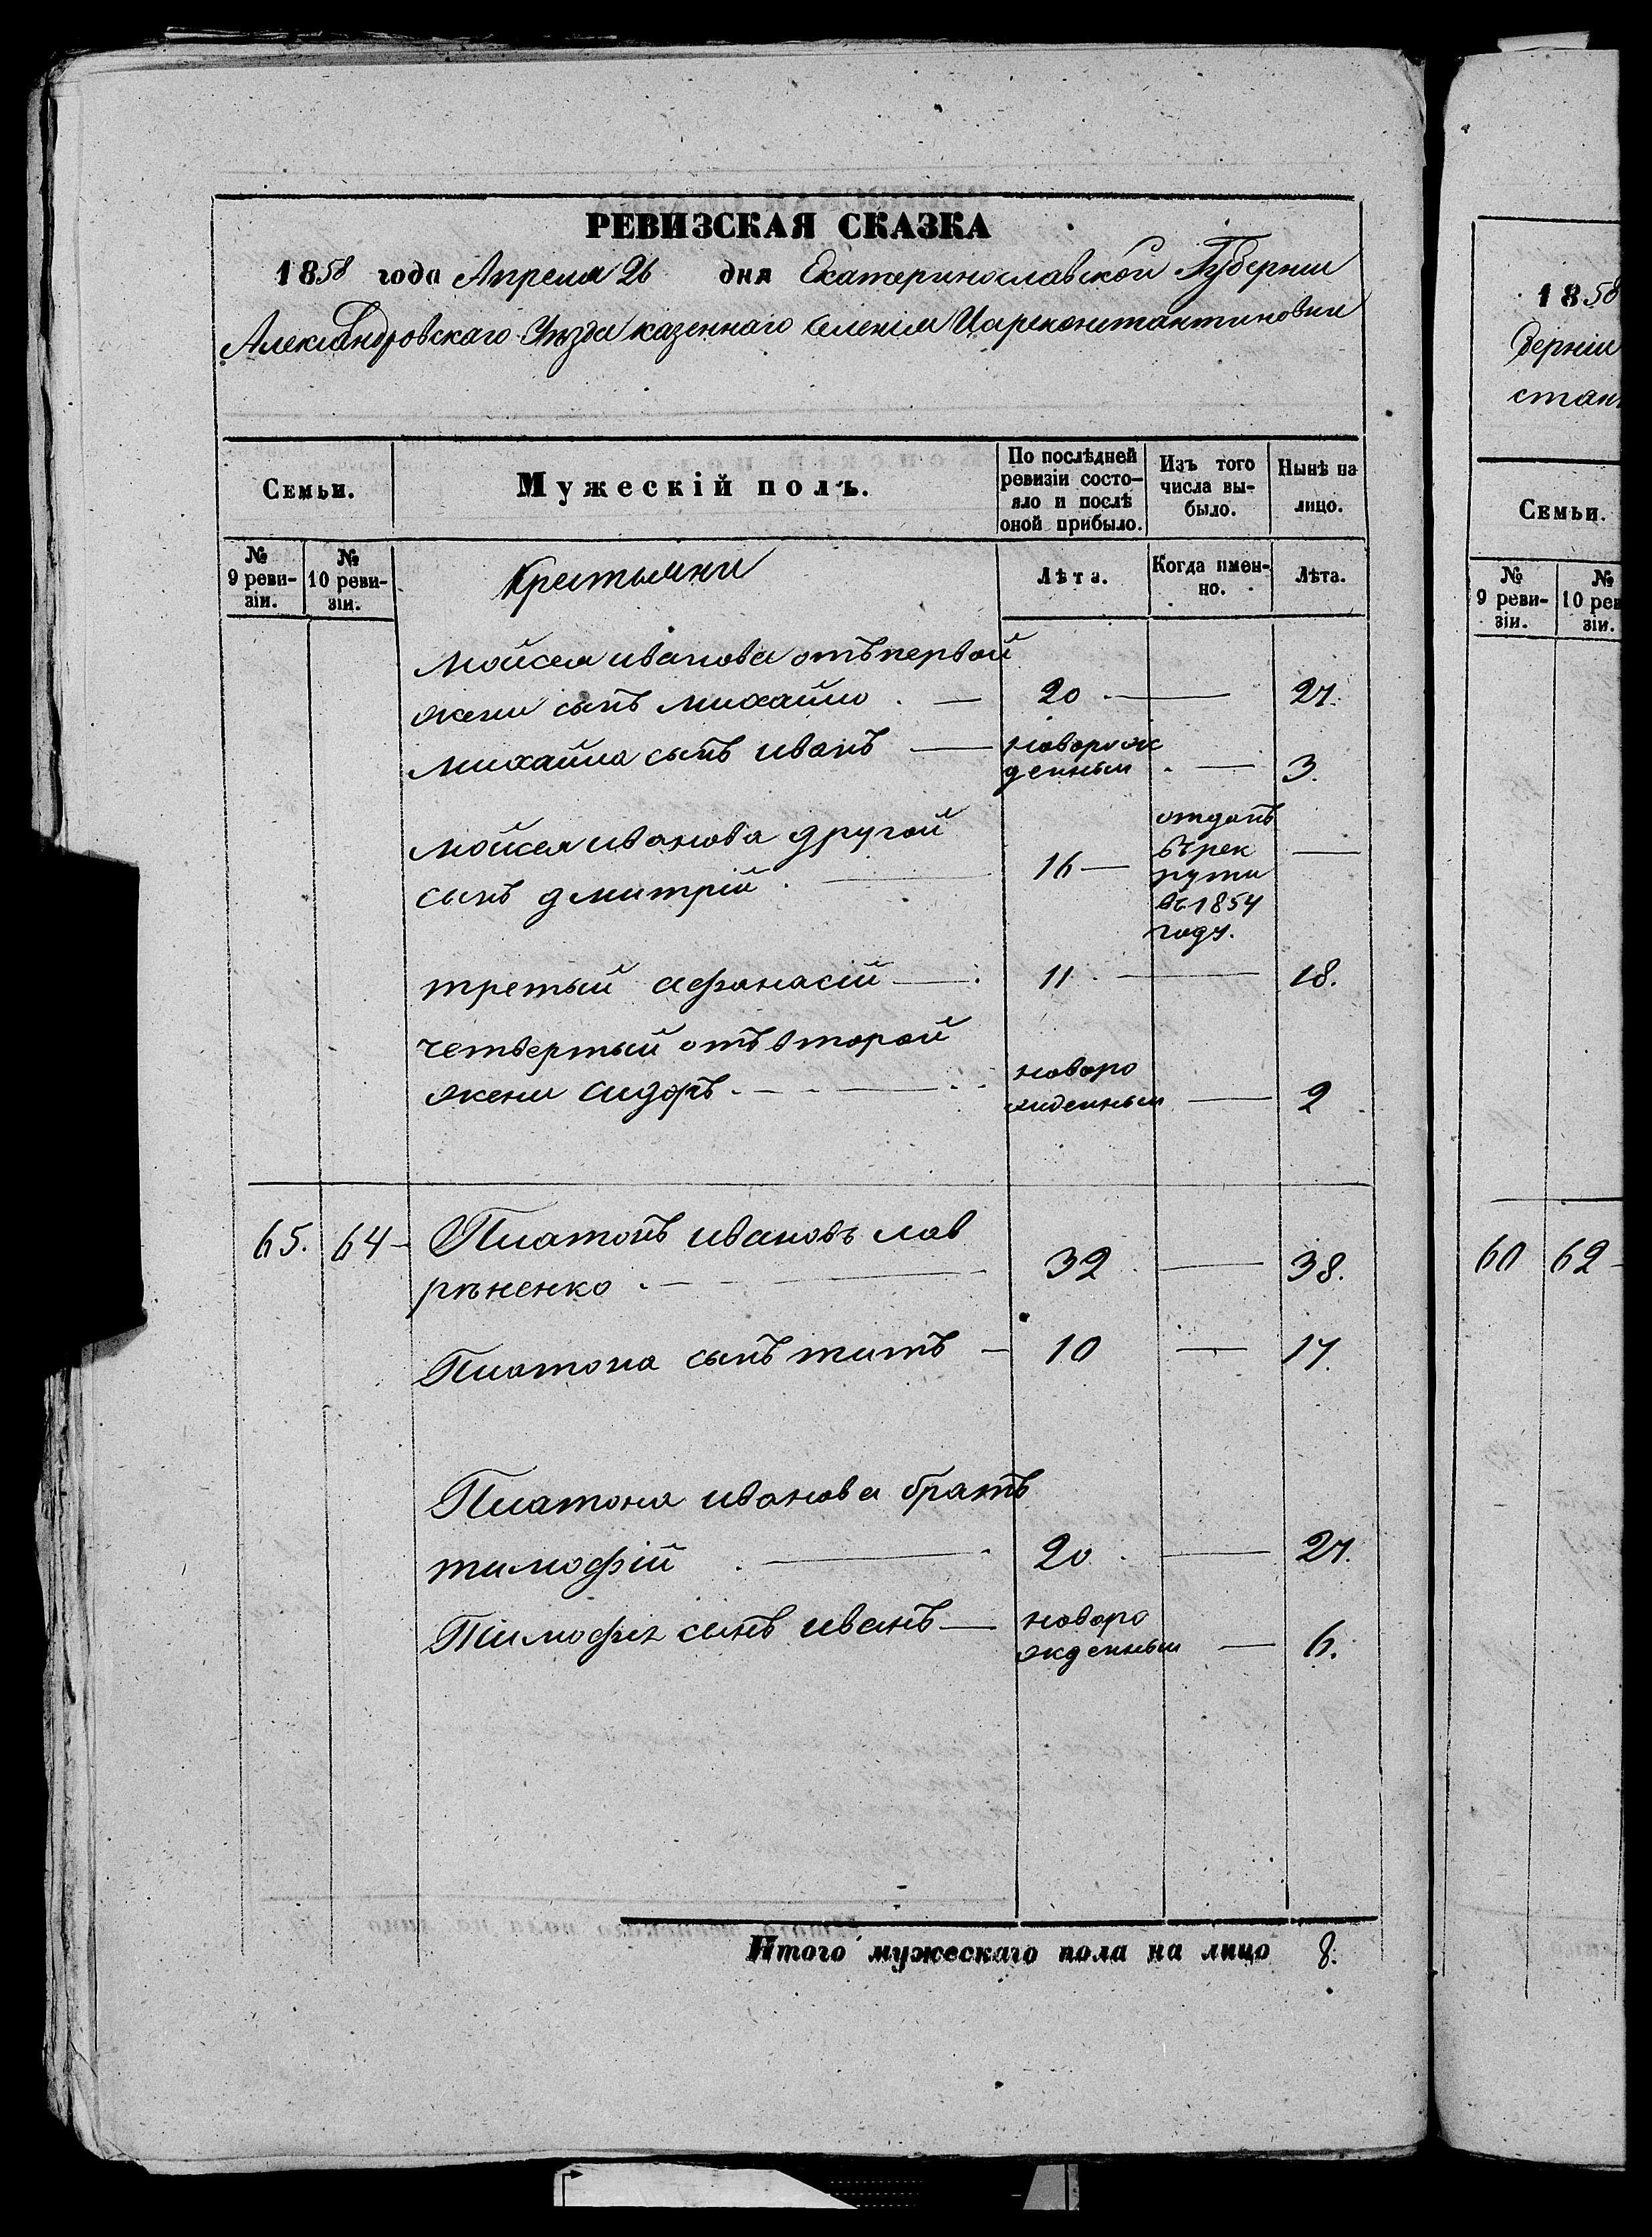 РЕВИЗСКАЯ СКАЗКА
1858 года Апреля 26 дня Екатеринославской Губерніи
Александровскаго Уѣзда казеннаго Селенія Цареконстантиновки
Семьи.
Мужескій полъ.
По послѣдней ревизіи состояло и послѣ оной прибыло.
Изъ того числа выбыло.
Нынѣ на лицо.
№ 9 ревизіи.
№ 10 ревизіи.
Крестьяни
Лѣта.
Когда именно.
Лѣта.
Мойсея иванова отъ первой
жени сынъ михайло . — 20 — 27.
михайла сынъ иванъ — новорож
денным . — 3.
мойсея иванова другой
сынъ дмитрій . — 16 — отданъ
въ рек
рути
въ 1854
году. —
третый афанасій — 11 — 18.
четвертый отъ второй
жени сидоръ — новоро
жденным — 2
65. 64 - Платонъ ивановъ лав
рѣненко . — 32 — 38.
Платона сынъ титъ — 10 — 17.
Платона иванова братъ
тимофій . — 20 — 27.
Тимофія сынъ иванъ — новоро
жденным — 6.
Итого мужескаго пола на лицо 8.
1858
берніи
стан
Семьи.
№ 9 ревизіи.
№ 10 рев
зіи.
60 62